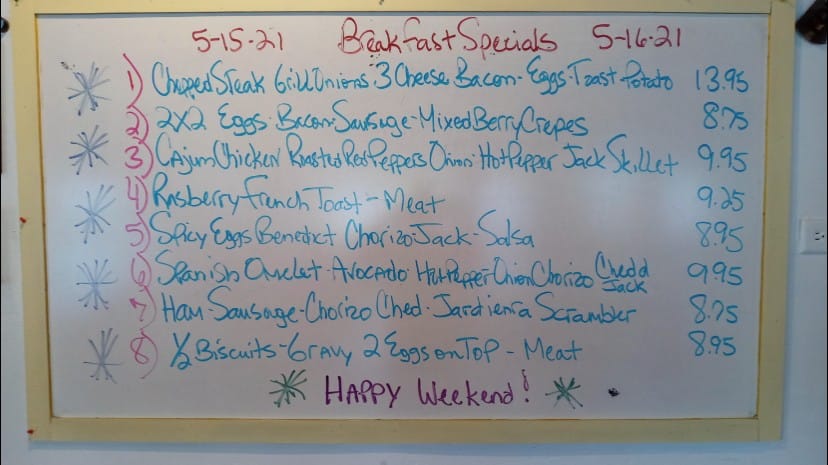 5-15-21 Breakfast Specials 5-16-21
1) Chopped Steak Grill Onions 3 Cheese Bacon-Eggs-Toast-Potato 13.95
2) 2X2 Eggs-Bacon-Sausage-Mixed Berry Crepes 8.75
3) Cajun Chicken Roasted Red Peppers Onion-Hot Pepper Jack Skillet 9.95
4) Rasberry French Toast - Meat 9.25
5) Spicy Eggs Benedict Chorizo-Jack-Salsa 8.95
6) Spanish Omelet-Avocado Hot Pepper-Onion Chorizo Chedd Jack 9.95
7) Ham-Sausage-Chorizo Ched-Jardienra Scrambler 8.75
8) 1/2 Biscuits-Gravy 2 Eggs on Top - Meat 8.95
Happy Weekend!